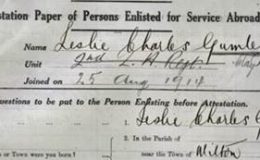 station Paper of Persons Enlisted for Service Abroad
Name Leslie Charles
Unit 2nd L. H. Regt.
Joined on 25 Aug 1914
uestions to be put to the Person Enlisting before Attestation.
1. Leslie Charles
In the Parish of
or Town were you born? near the Town of Milton